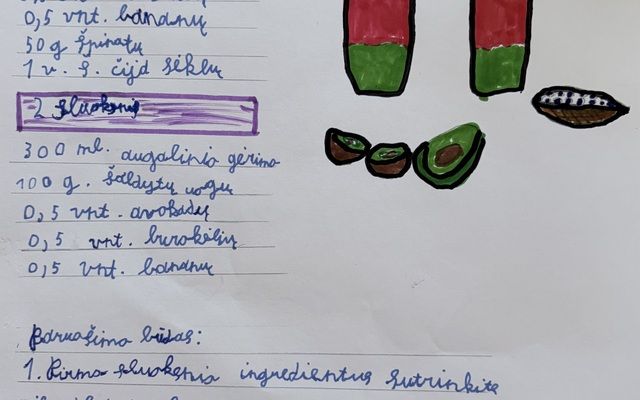 0,5 vnt. bananų
50 g špinatų
1 v. š. čijų sėklų
2 sluoksnis
300 ml. augalinio gėrimo
100 g. šaldytų uogų
0,5 vnt. avokadų
0,5 vnt. burokėlių
0,5 vnt. bananų
Paruošimo būdas:
1. Pirmo sluoksnio ingredientus sutrinkite